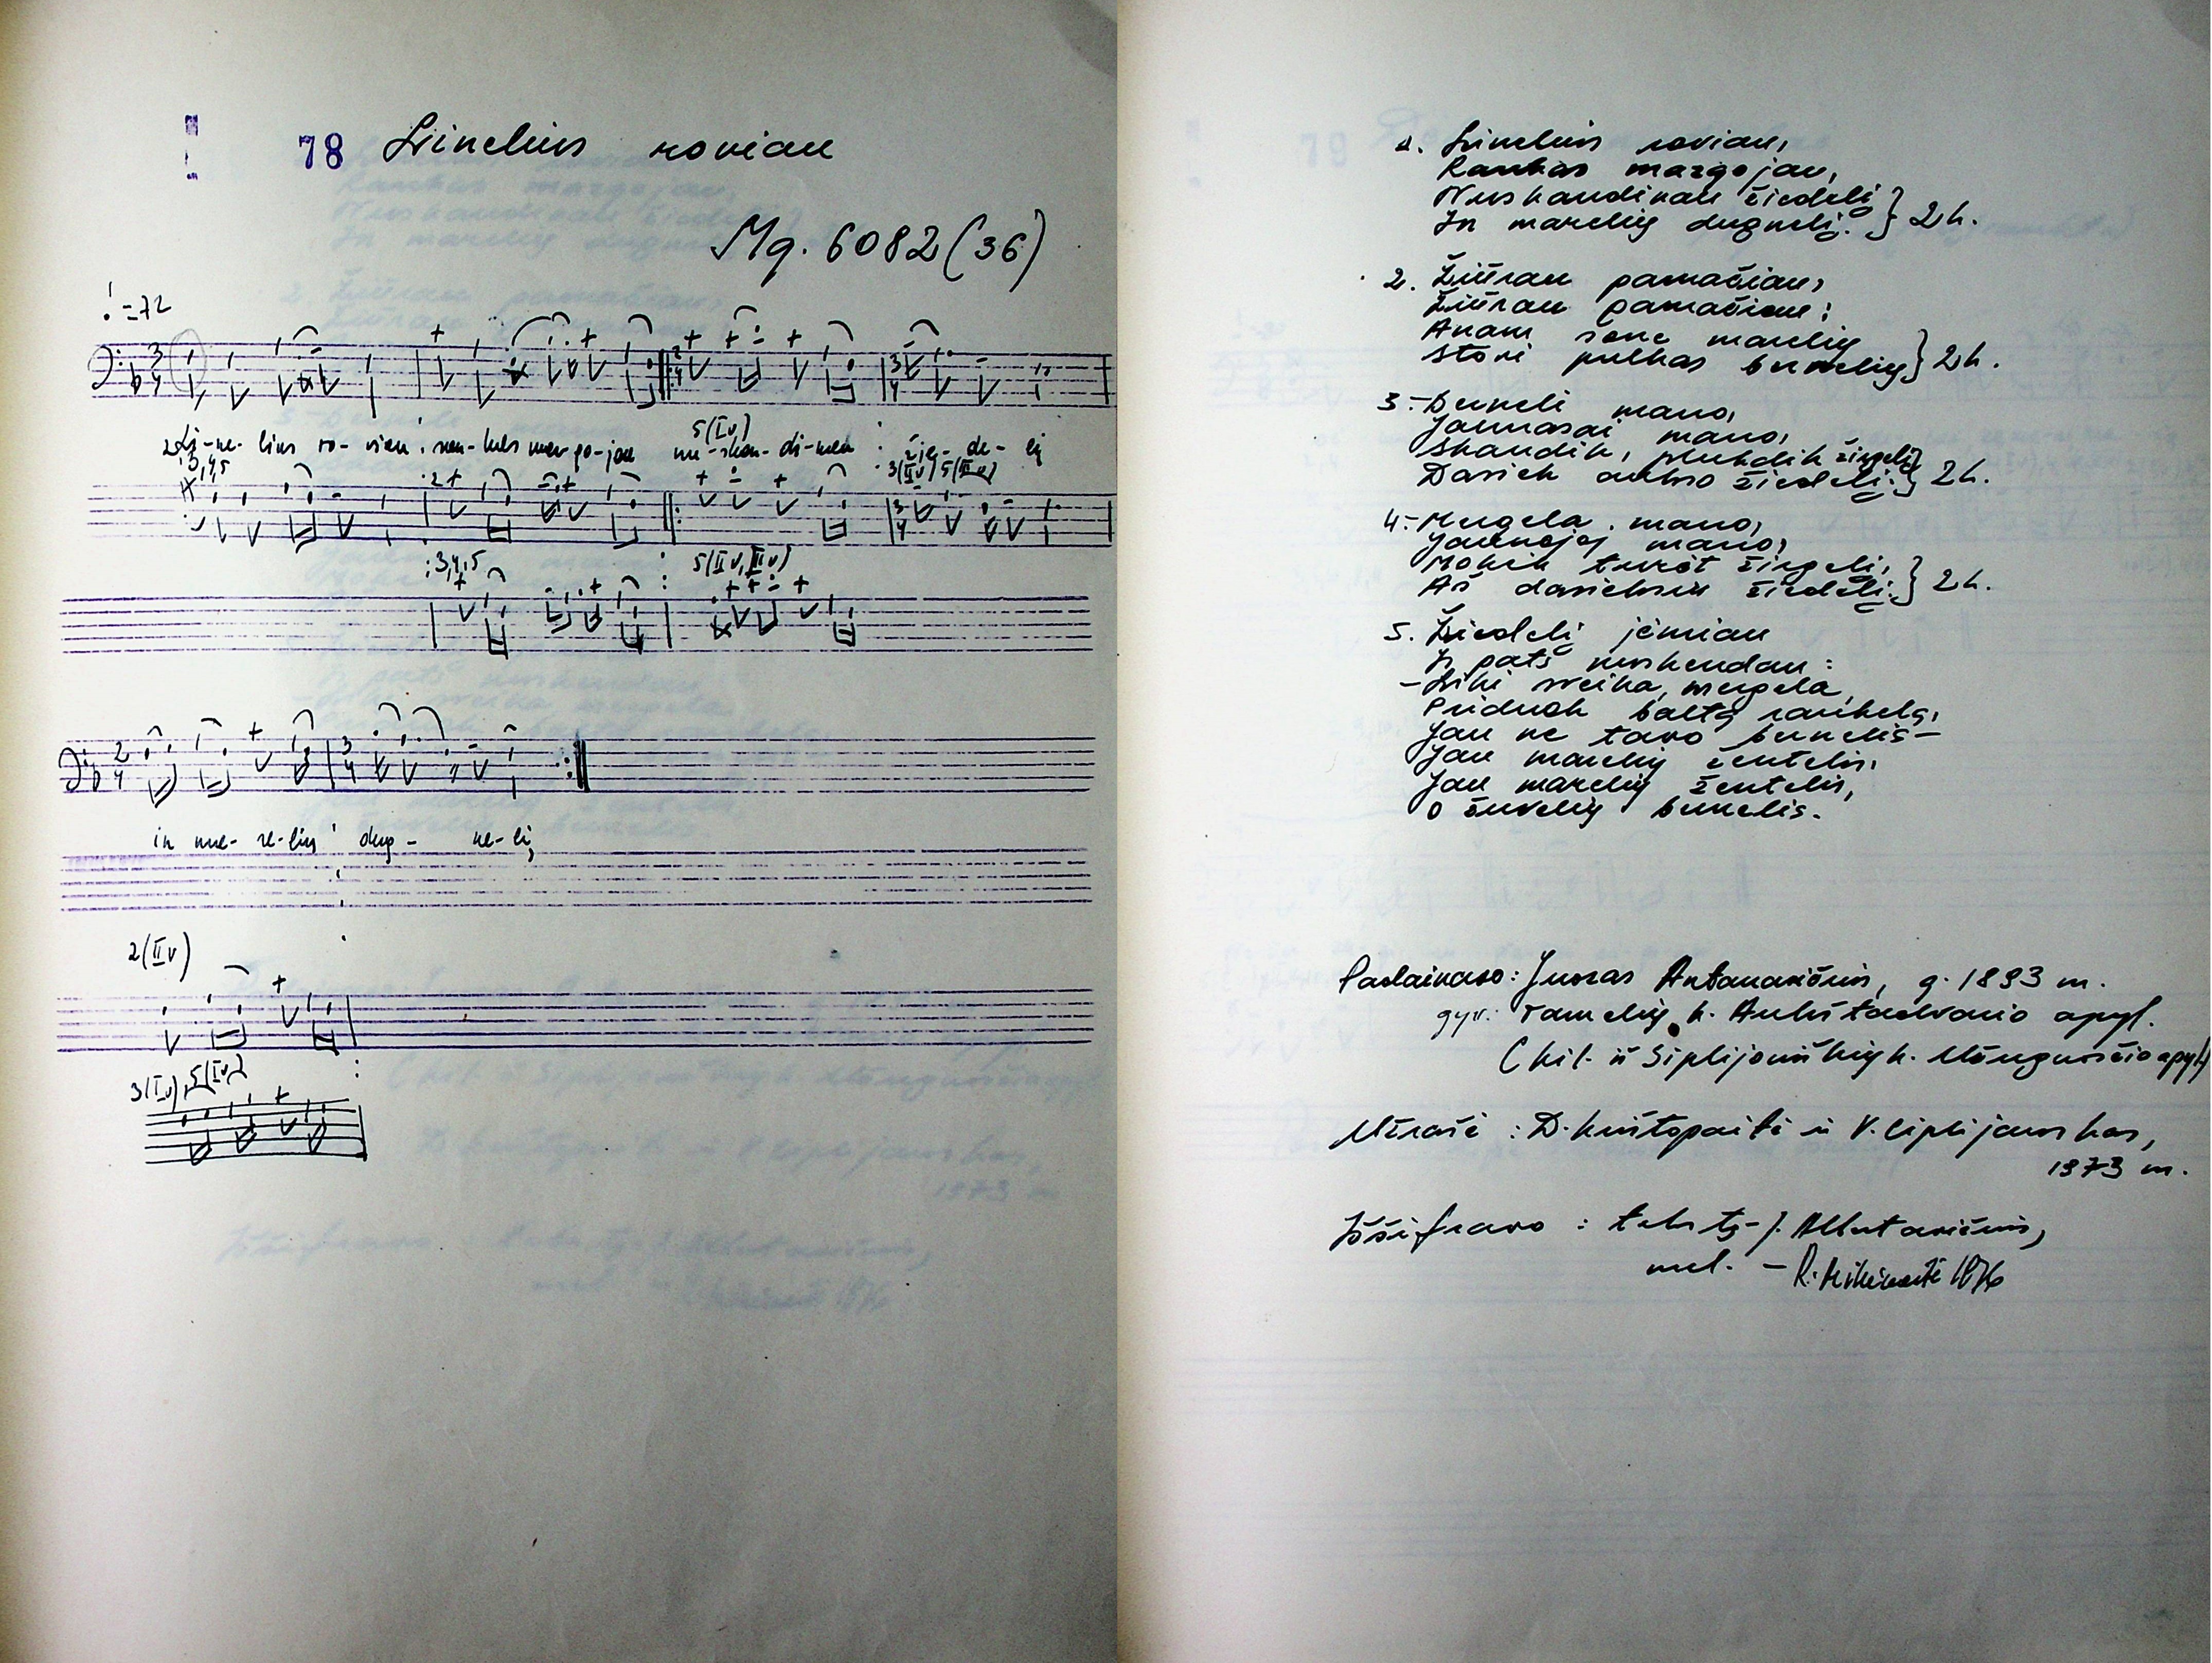 78 Linelius roviau
Mg. 6082 (36)
=72
3 4
2 4
3 4
5(I v)
Li-ne-lius ro-viau ran-kas maz-go-jau nu-skan-di-nau žie-de-lį
3,4,5
2
3(II v) 5(II v)
3 4
3,4,5
5(II v, III v)
2 4
3 4
in ma-re-lių dug-ne-lį
2(II v)
3(I v), 5(I v)
1. Linelius roviau,
Rankas mazgojau,
Nuskandinau žiedelį
In marelių dugnelį. } 2 k.
2. Žiūrau pamačiau,
Žiūrau pamačiau:
Anam šone marelių
Stovi pulkas bernelių } 2 k.
3. - Berneli mano,
Jaunasai mano,
Skandik, plukdik žirgelį,
Dasiek aukso žiedelį. } 2 k.
4. - Mergela mano,
Jaunoji mano,
Mokik turėt žirgelį,
Aš dasieksiu žiedelį. } 2 k.
5. Žiedelį jėmiau
Ir pats nuskendau:
- Liki sveika, mergela,
Priduok baltą rankelą,
Jau ne tavo bernelis -
Jau marelių žentelis,
Jau marelių žentelis,
O žuvelių bernelis.
Padainavo: Juozas Antanavičius, g. 1893 m.
gyv. Tamelių k. Aukštadvario apyl.
(kil. iš Siplijoniškių k. Užuguosčio apyl.)
Užrašė: D. Krištopaitė ir V. Ciplijauskas,
1973 m.
Iššifravo: tekstą - J.
mel. - R. 1976